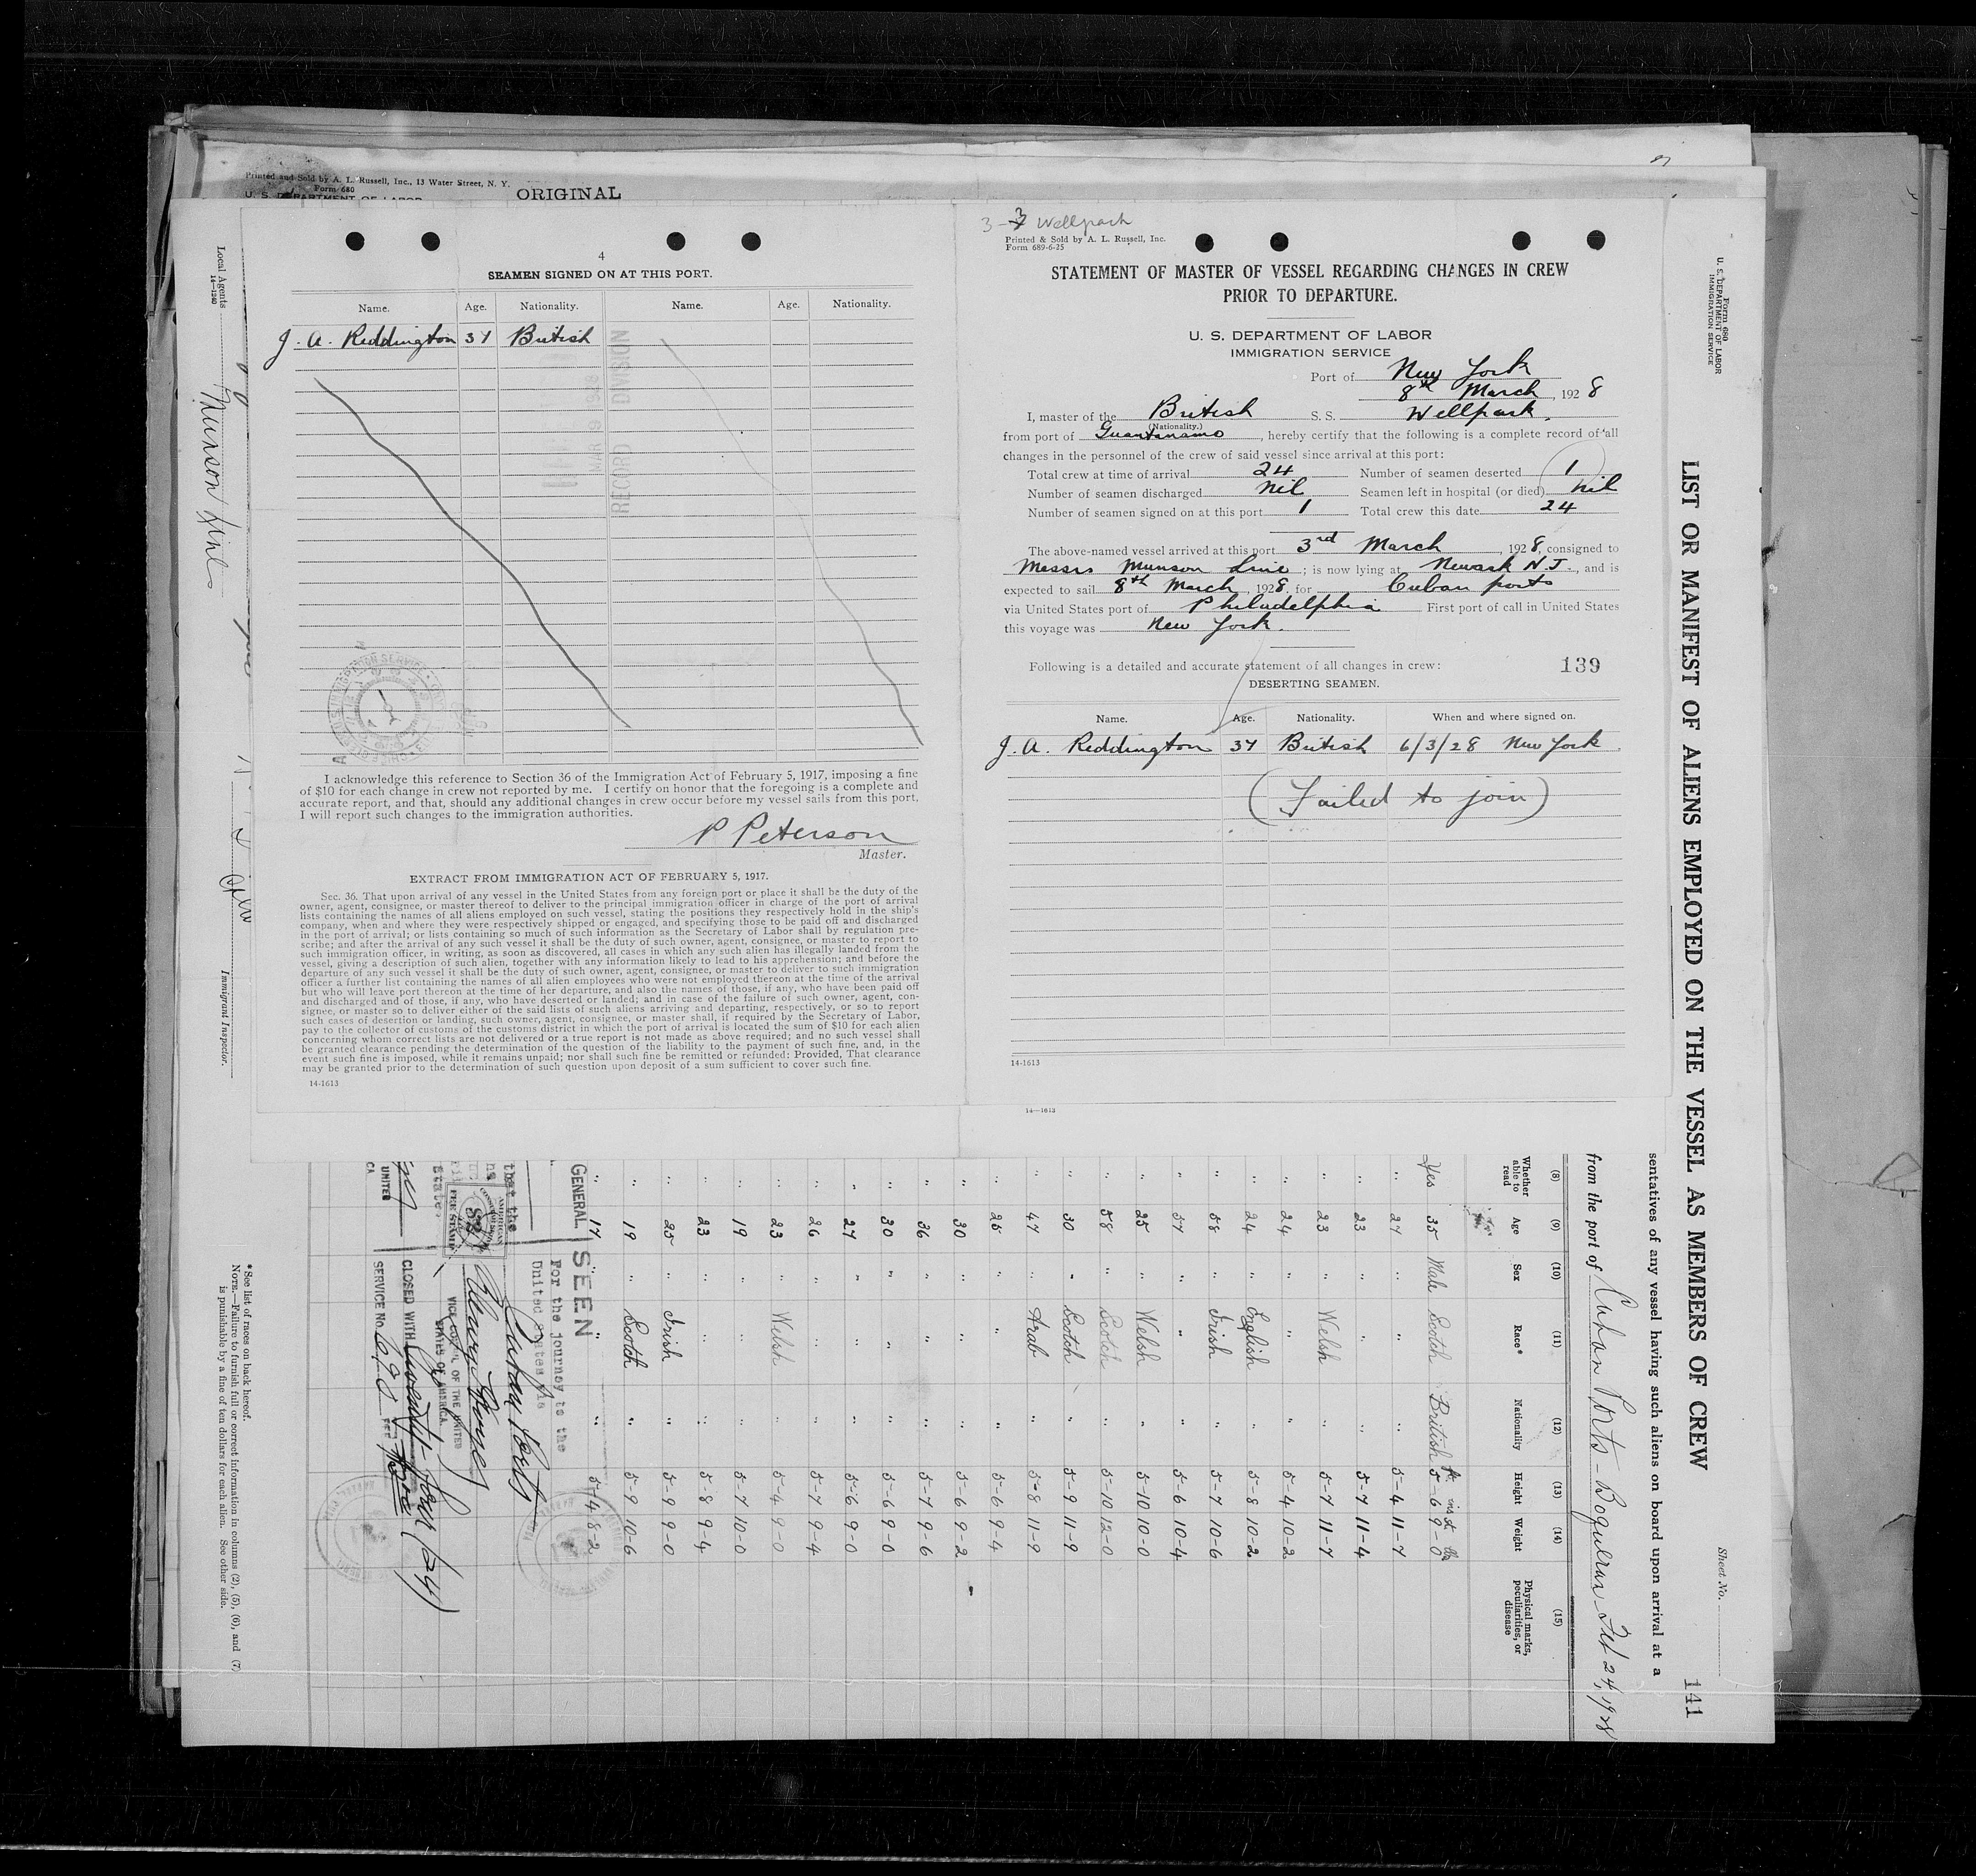 Printed and Sold by A. L. Russell, Inc., 13 Water Street, N. Y.
Form 680
U. S. DEPARTMENT OF LABOR
ORIGINAL
4
SEAMEN SIGNED ON AT THIS PORT.
Name. Age. Nationality. Name. Age. Nationality.
J. A. Reddington 37 British
RECORD DIVISION
I acknowledge this reference to Section 36 of the Immigration Act of February 5, 1917, imposing a fine
of $10 for each change in crew not reported by me. I certify on honor that the foregoing is a complete and
accurate report, and that, should any additional changes in crew occur before my vessel sails from this port,
I will report such changes to the immigration authorities.
P Peterson
Master.
EXTRACT FROM IMMIGRATION ACT OF FEBRUARY 5, 1917.
Sec. 36. That upon arrival of any vessel in the United States from any foreign port or place it shall be the duty of the
owner, agent, consignee, or master thereof to deliver to the principal immigration officer in charge of the port of arrival
lists containing the names of all aliens employed on such vessel, stating the positions they respectively hold in the ship's
company, when and where they were respectively shipped or engaged, and specifying those to be paid off and discharged
in the port of arrival; or lists containing so much of such information as the Secretary of Labor shall by regulation pre-
scribe; and after the arrival of any such vessel it shall be the duty of such owner, agent, consignee, or master to report to
such immigration officer, in writing, as soon as discovered, all cases in which any such alien has illegally landed from the
vessel, giving a description of such alien, together with any information likely to lead to his apprehension; and before the
departure of any such vessel it shall be the duty of such owner, agent, consignee, or master to deliver to such immigration
officer a further list containing the names of all alien employees who were not employed thereon at the time of the arrival
but who will leave port thereon at the time of her departure, and also the names of those, if any, who have been paid off
and discharged and of those, if any, who have deserted or landed; and in case of the failure of such owner, agent, con-
signee, or master so to deliver either of the said lists of such aliens arriving and departing, respectively, or so to report
such cases of desertion or landing, such owner, agent, consignee, or master shall, if required by the Secretary of Labor,
pay to the collector of customs of the customs district in which the port of arrival is located the sum of $10 for each alien
concerning whom correct lists are not delivered or a true report is not made as above required; and no such vessel shall
be granted clearance pending the determination of the question of the liability to the payment of such fine, and, in the
event such fine is imposed, while it remains unpaid; nor shall such fine be remitted or refunded: Provided, That clearance
may be granted prior to the determination of such question upon deposit of a sum sufficient to cover such fine.
14-1613
3-3 Wellpark
Printed & Sold by A. L. Russell, Inc.
Form 689-6-25
STATEMENT OF MASTER OF VESSEL REGARDING CHANGES IN CREW
PRIOR TO DEPARTURE.
U. S. DEPARTMENT OF LABOR
IMMIGRATION SERVICE
Port of New York
8th March, 1928
I, master of the British S. S. Wellpark.
(Nationality.)
from port of Guantanamo, hereby certify that the following is a complete record of all
changes in the personnel of the crew of said vessel since arrival at this port:
Total crew at time of arrival 24 Number of seamen deserted 1
Number of seamen discharged Nil Seamen left in hospital (or died) Nil
Number of seamen signed on at this port 1 Total crew this date 24
The above-named vessel arrived at this port 3rd March, 1928, consigned to
Messrs Munson Line; is now lying at Newark N.J., and is
expected to sail 8th March, 1928, for Cuban ports
via United States port of Philadelphia First port of call in United States
this voyage was New York.
Following is a detailed and accurate statement of all changes in crew: 139
DESERTING SEAMEN.
Name. Age. Nationality. When and where signed on.
J. A. Reddington 37 British 6/3/28 New York
(Failed to join)
14-1613
14-1613
Form 680
U. S. DEPARTMENT OF LABOR
IMMIGRATION SERVICE
Sheet No.
LIST OR MANIFEST OF ALIENS EMPLOYED ON THE VESSEL AS MEMBERS OF CREW 141
sentatives of any vessel having such aliens on board upon arrival at a
from the port of Cuban Ports - Boqueron Feb 24, 1928
(8) (9) (10) (11) (12) (13) (14) (15)
Whether able to read Age Sex Race* Nationality Height Weight Physical marks, peculiarities, or disease
Yes 35 Male Scotch British 5-6 9-0
" 27 " " " 5-4 11-7
" 23 " " " 5-7 11-4
" 23 " Welsh " 5-7 11-7
" 24 " " " 5-4 10-2
" 24 " English " 5-8 10-2
" 58 " Irish " 5-7 10-6
" 57 " " " 5-6 10-4
" 25 " Welsh " 5-10 10-0
" 58 " Scotch " 5-10 12-0
" 30 " Scotch " 5-9 11-9
" 47 " Arab " 5-8 11-9
" 25 " " " 5-6 9-4
" 30 " " " 5-6 9-2
" 36 " " " 5-7 9-6
" 30 " " " 5-6 9-0
" 27 " " " 5-6 9-0
" 26 " " " 5-7 9-4
" 23 " Welsh " 5-4 9-0
" 19 " " " 5-7 10-0
" 23 " " " 5-8 9-4
" 25 " Irish " 5-9 9-0
" 19 " Scotch " 5-9 10-6
" 17 " " " 5-4 8-2
GENERAL. SEEN
For the journey to the
United States via
Cuban Ports
VICE CONSUL OF THE UNITED
STATES OF AMERICA.
AMERICAN
FEE STAMP
CLOSED WITH Twenty-four (24)
SERVICE No. FEE None
*See list of races on back hereof.
NOTE.—Failure to furnish full or correct information in columns (2), (5), (6), and (7)
is punishable by a fine of ten dollars for each alien. See other side.
Local Agents Munson Line
14-1240
Immigrant Inspector.